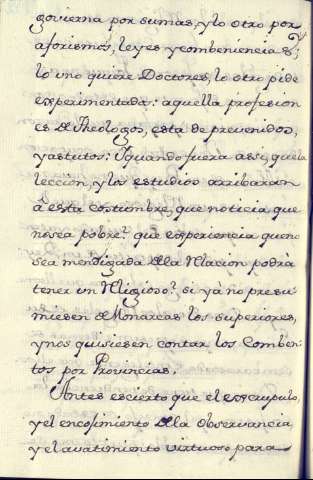 govierna por sumas, y lo otro por
aforismos, leyes y combeniencias;
lo uno quiere Doctores, lo otro pide
experimentados: aquella profesion
es de Theologos, esta de prevenidos,
y astutos: Y quando fuera assi, que la
leccion, y los estudios arribaran
â esta costumbre, que noticia que
no sea pobre? que experiencia que no
sea mendigada de la Relacion podrà
tener un Religioso? si yà no presu-
miesen de Monarcas los superiores,
y nos quisiesen contar los Comben-
tos por Provincias.
Antes es cierto que el escrupulo,
y el encojimiento de la observancia,
y el avatimiento virtuoso para